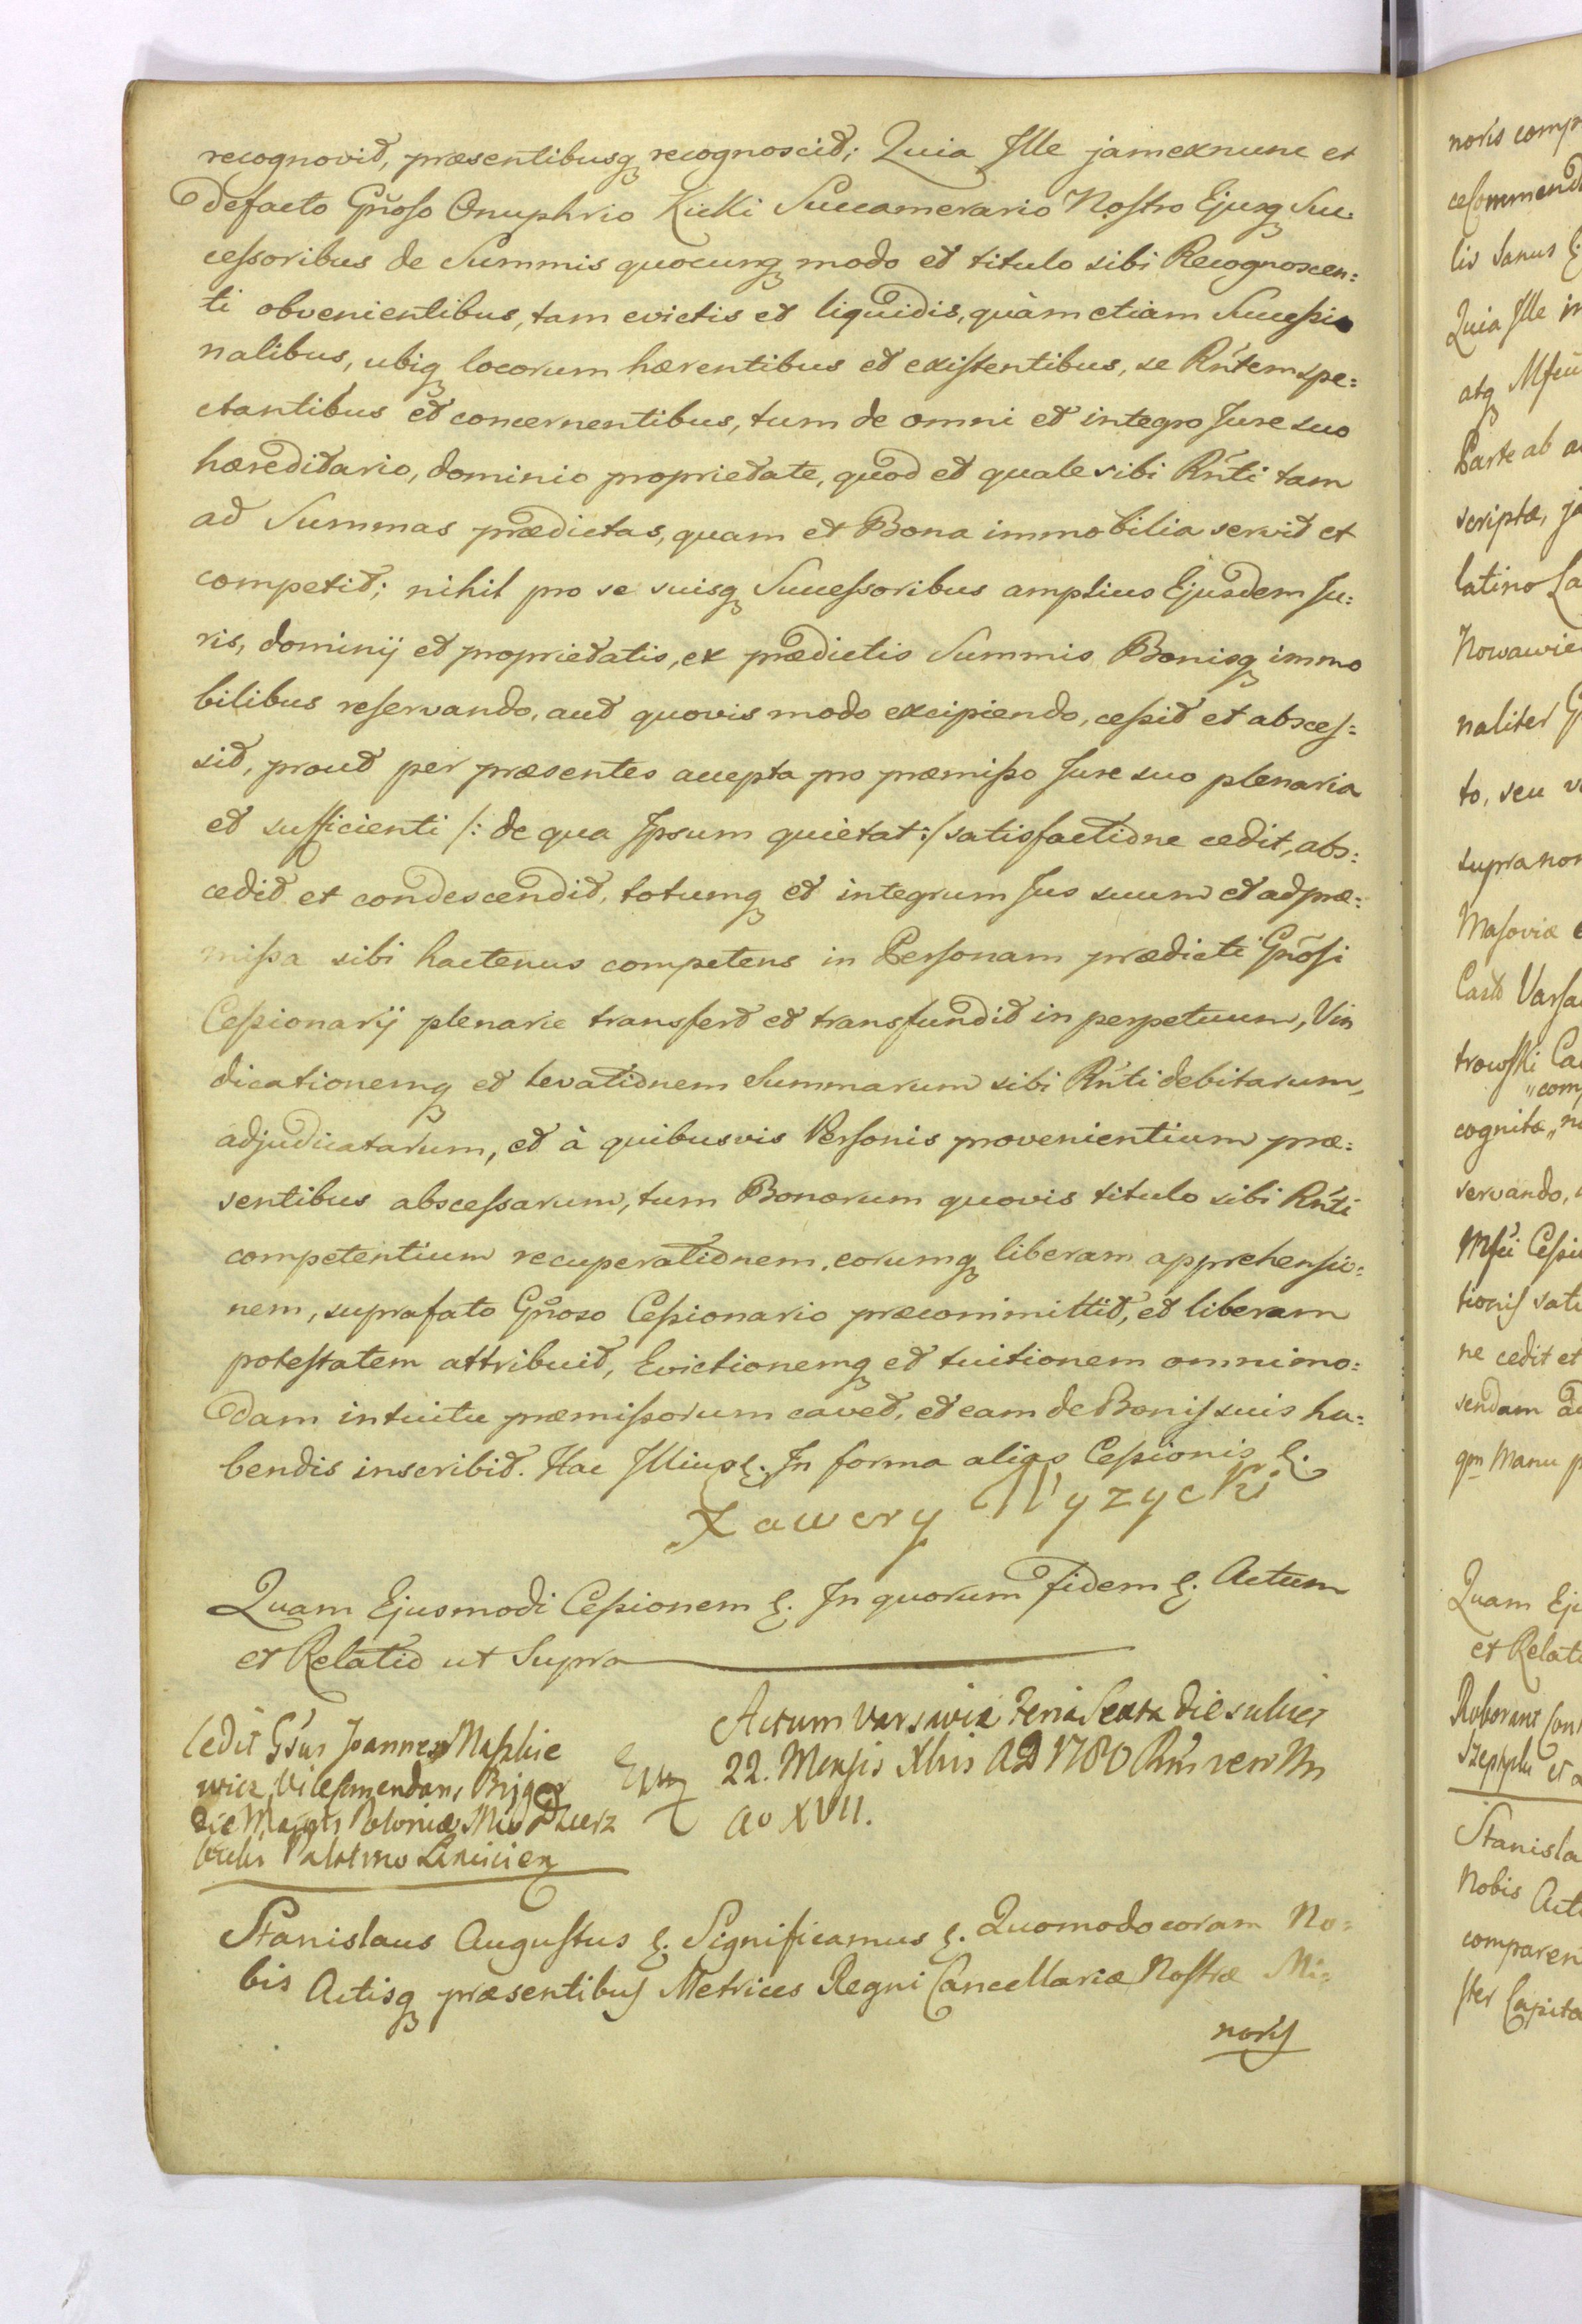 recognovit, præsentibusq recognoscit; Quia Ille jam ex nunc et
defacto Gñoso Onuphrio Kicki Succamerario Nostro Ejusq Suc:
cessoribus de Summis quocunq modo et titulo sibi Recognoscen:
ti obvenientibus, tam evictis et liquidis, quàm etiam Successio
nalibus, ubiq locorum hærentibus et existentibus, se Rñtem spe:
ctantibus et concernentibus, tum de omni et integro Jure suo
hæreditario, dominio proprietate, quod et quale sibi Rñti tam
ad Summas prædictas, quam et Bona immobilia servit et
competit; nihil pro se suisq Successoribus amplius Ejusdem Ju:
ris, dominij et proprietatis, ex prædictis Summis Bonisq immo
bilibus reservando, aut quovis modo excipiendo, cessit et absces:
sit, prout per præsentes accepta pro præmisso Jure suo plenaria
et sufficienti /: de qua Ipsum quietat :/ satisfactione cedit, abs:
cedit et condescendit, totumq et integrum Jus suum et ad præ:
missa sibi hactenus competens in Personam prædicti Gñosi
Cessionarij plenarie transfert et transfundit in perpetuum, Vin
dicationemq et levationem Summarum sibi Rñti debitarum,
adjudicatarum, et à quibusvis Personis provenientium præ:
sentibus abscessarum, tum Bonorum quovis titulo sibi Rñti
competentium recuperationem, eorumq liberam apprehensio:
nem, suprafato Gñoso Cessionario præcommittit, et liberam
potestatem attribuit, Evictionemq et tuitionem omnimo:
dam intuitu præmissorum cavet, et eam de Bonis suis ha:
bendis inscribit. Hac Illius &. In forma alias Cessionis &.
Xawery Wyzycki
Quam Ejusmodi Cessionem &. In quorum fidem &. Actum
et Relatio ut Supra
Cedit Gsus Joannes
wicz
Poloniæ
Palatino
Actum Varsaviæ Feria Sexta die
22. Mensis Xbris AD 1780
Ao XVII.
Stanislaus Augustus &. Significamus &. Quomodo coram No:
bis Actisq præsentibus Metrices Regni Cancellariæ Nostræ Mi:
noris
noris
Quia Ille
Parte ab
scripta,
latino
naliter
to, seu
supra
Masoviæ
cognita
servando,
ne cedit et
Manu
Quam
et
Stanisla
Nobis
comparen
ster Capita